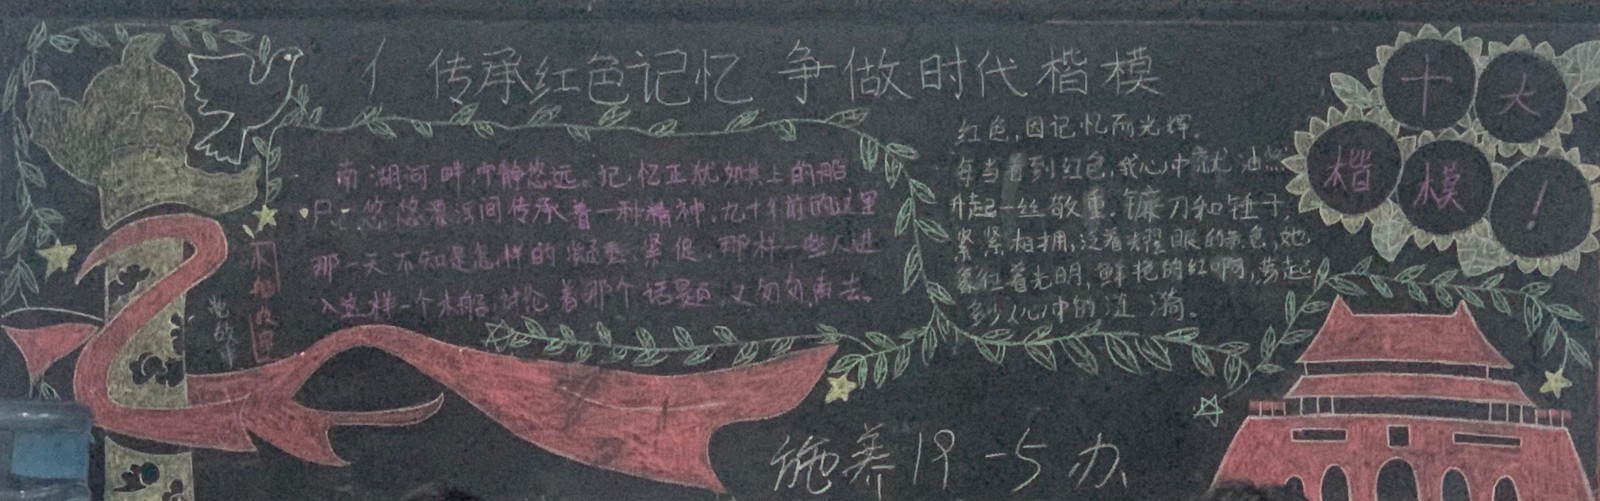 传承红色记忆 争做时代楷模
南湖河畔,宁静悠远。记忆正犹如其上的船
只,悠悠 间传承着一种精神,九十年前的这里
那一天不知是怎样的凝重、紧促,那样一些人进
入这样一个木船,讨论着那个话题,又匆匆离去。
不忘
党故事
红色,因记忆而光辉。
每当看到红色,我心中就油然
升起一丝敬重。镰刀和锤子,
紧紧相拥,泛着耀眼的 色,她
象征着光明,鲜艳的红啊,荡起
多少人心中的涟漪。
十大
楷模!
施养19-5办